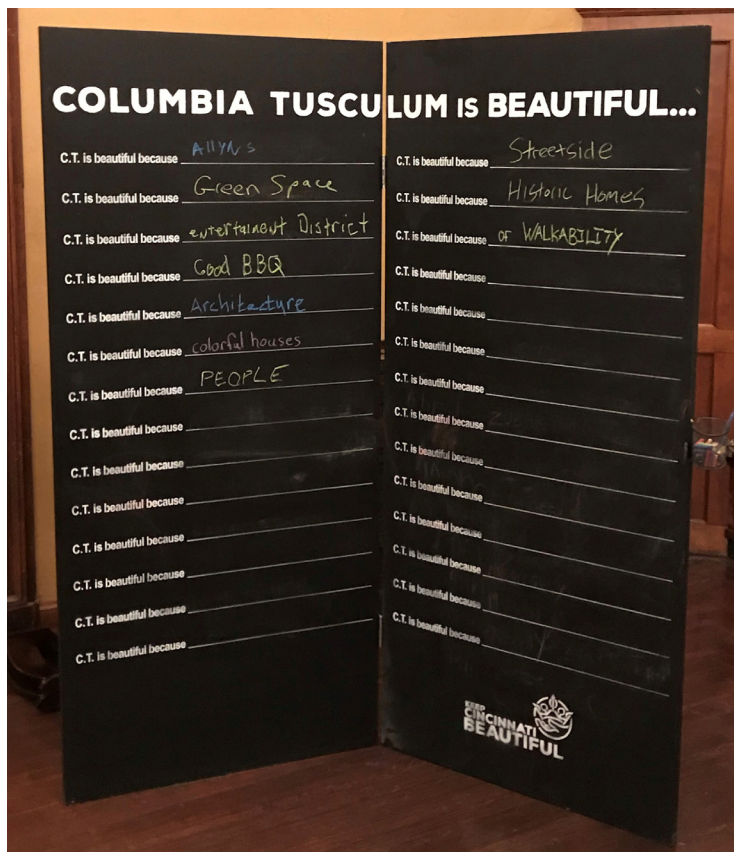 COLUMBIA TUSCULUM IS BEAUTIFUL...
C.T. is beautiful because Allyn s
C.T. is beautiful because Green Space
C.T. is beautiful because entertainent District
C.T. is beautiful because Good BBQ
C.T. is beautiful because Architecture
C.T. is beautiful because colorful houses
C.T. is beautiful because PEOPLE
C.T. is beautiful because
C.T. is beautiful because
C.T. is beautiful because
C.T. is beautiful because
C.T. is beautiful because
C.T. is beautiful because
C.T. is beautiful because
C.T. is beautiful because Streetside
C.T. is beautiful because Historic Homes
C.T. is beautiful because of WALKABILITY
C.T. is beautiful because
C.T. is beautiful because
C.T. is beautiful because
C.T. is beautiful because
C.T. is beautiful because
C.T. is beautiful because
C.T. is beautiful because
C.T. is beautiful because
C.T. is beautiful because
C.T. is beautiful because
C.T. is beautiful because
KEEP
CINCINNATI
BEAUTIFUL